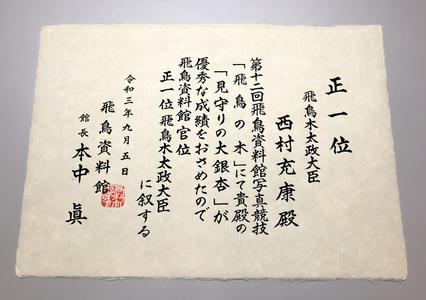 正一位
飛鳥木太政大臣
西村充康殿
第十二回飛鳥資料館写真競技
「飛鳥の木」にて貴殿の
「見守りの大銀杏」が
優秀な成績をおさめたので
飛鳥資料館官位
正一位飛鳥木太政大臣
に叙する
令和三年九月五日
飛鳥資料館
館長 本中眞